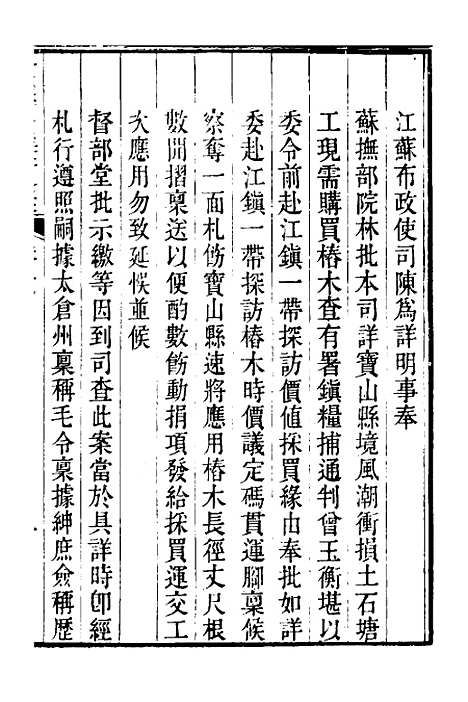 江蘇布政使司陳爲詳明事奉
蘇撫部院林批本司詳寶山縣境風潮衝損土石塘
工現需購買樁木查有署鎮糧捕通判曾玉衡堪以
委令前赴江鎮一帶探訪價值採買緣由奉批如詳
委赴江鎮一帶探訪樁木時價議定碼貫運腳稟候
察奪一面札飭寶山縣速將應用樁木長徑丈尺根
數開摺稟送以便酌數飭動捐項發給採買運交工
次應用勿致延候並候
督部堂批示繳等因到司查此案當於具詳時卽經
札行遵照嗣據太倉州稟稱毛令稟據紳庶僉稱歷